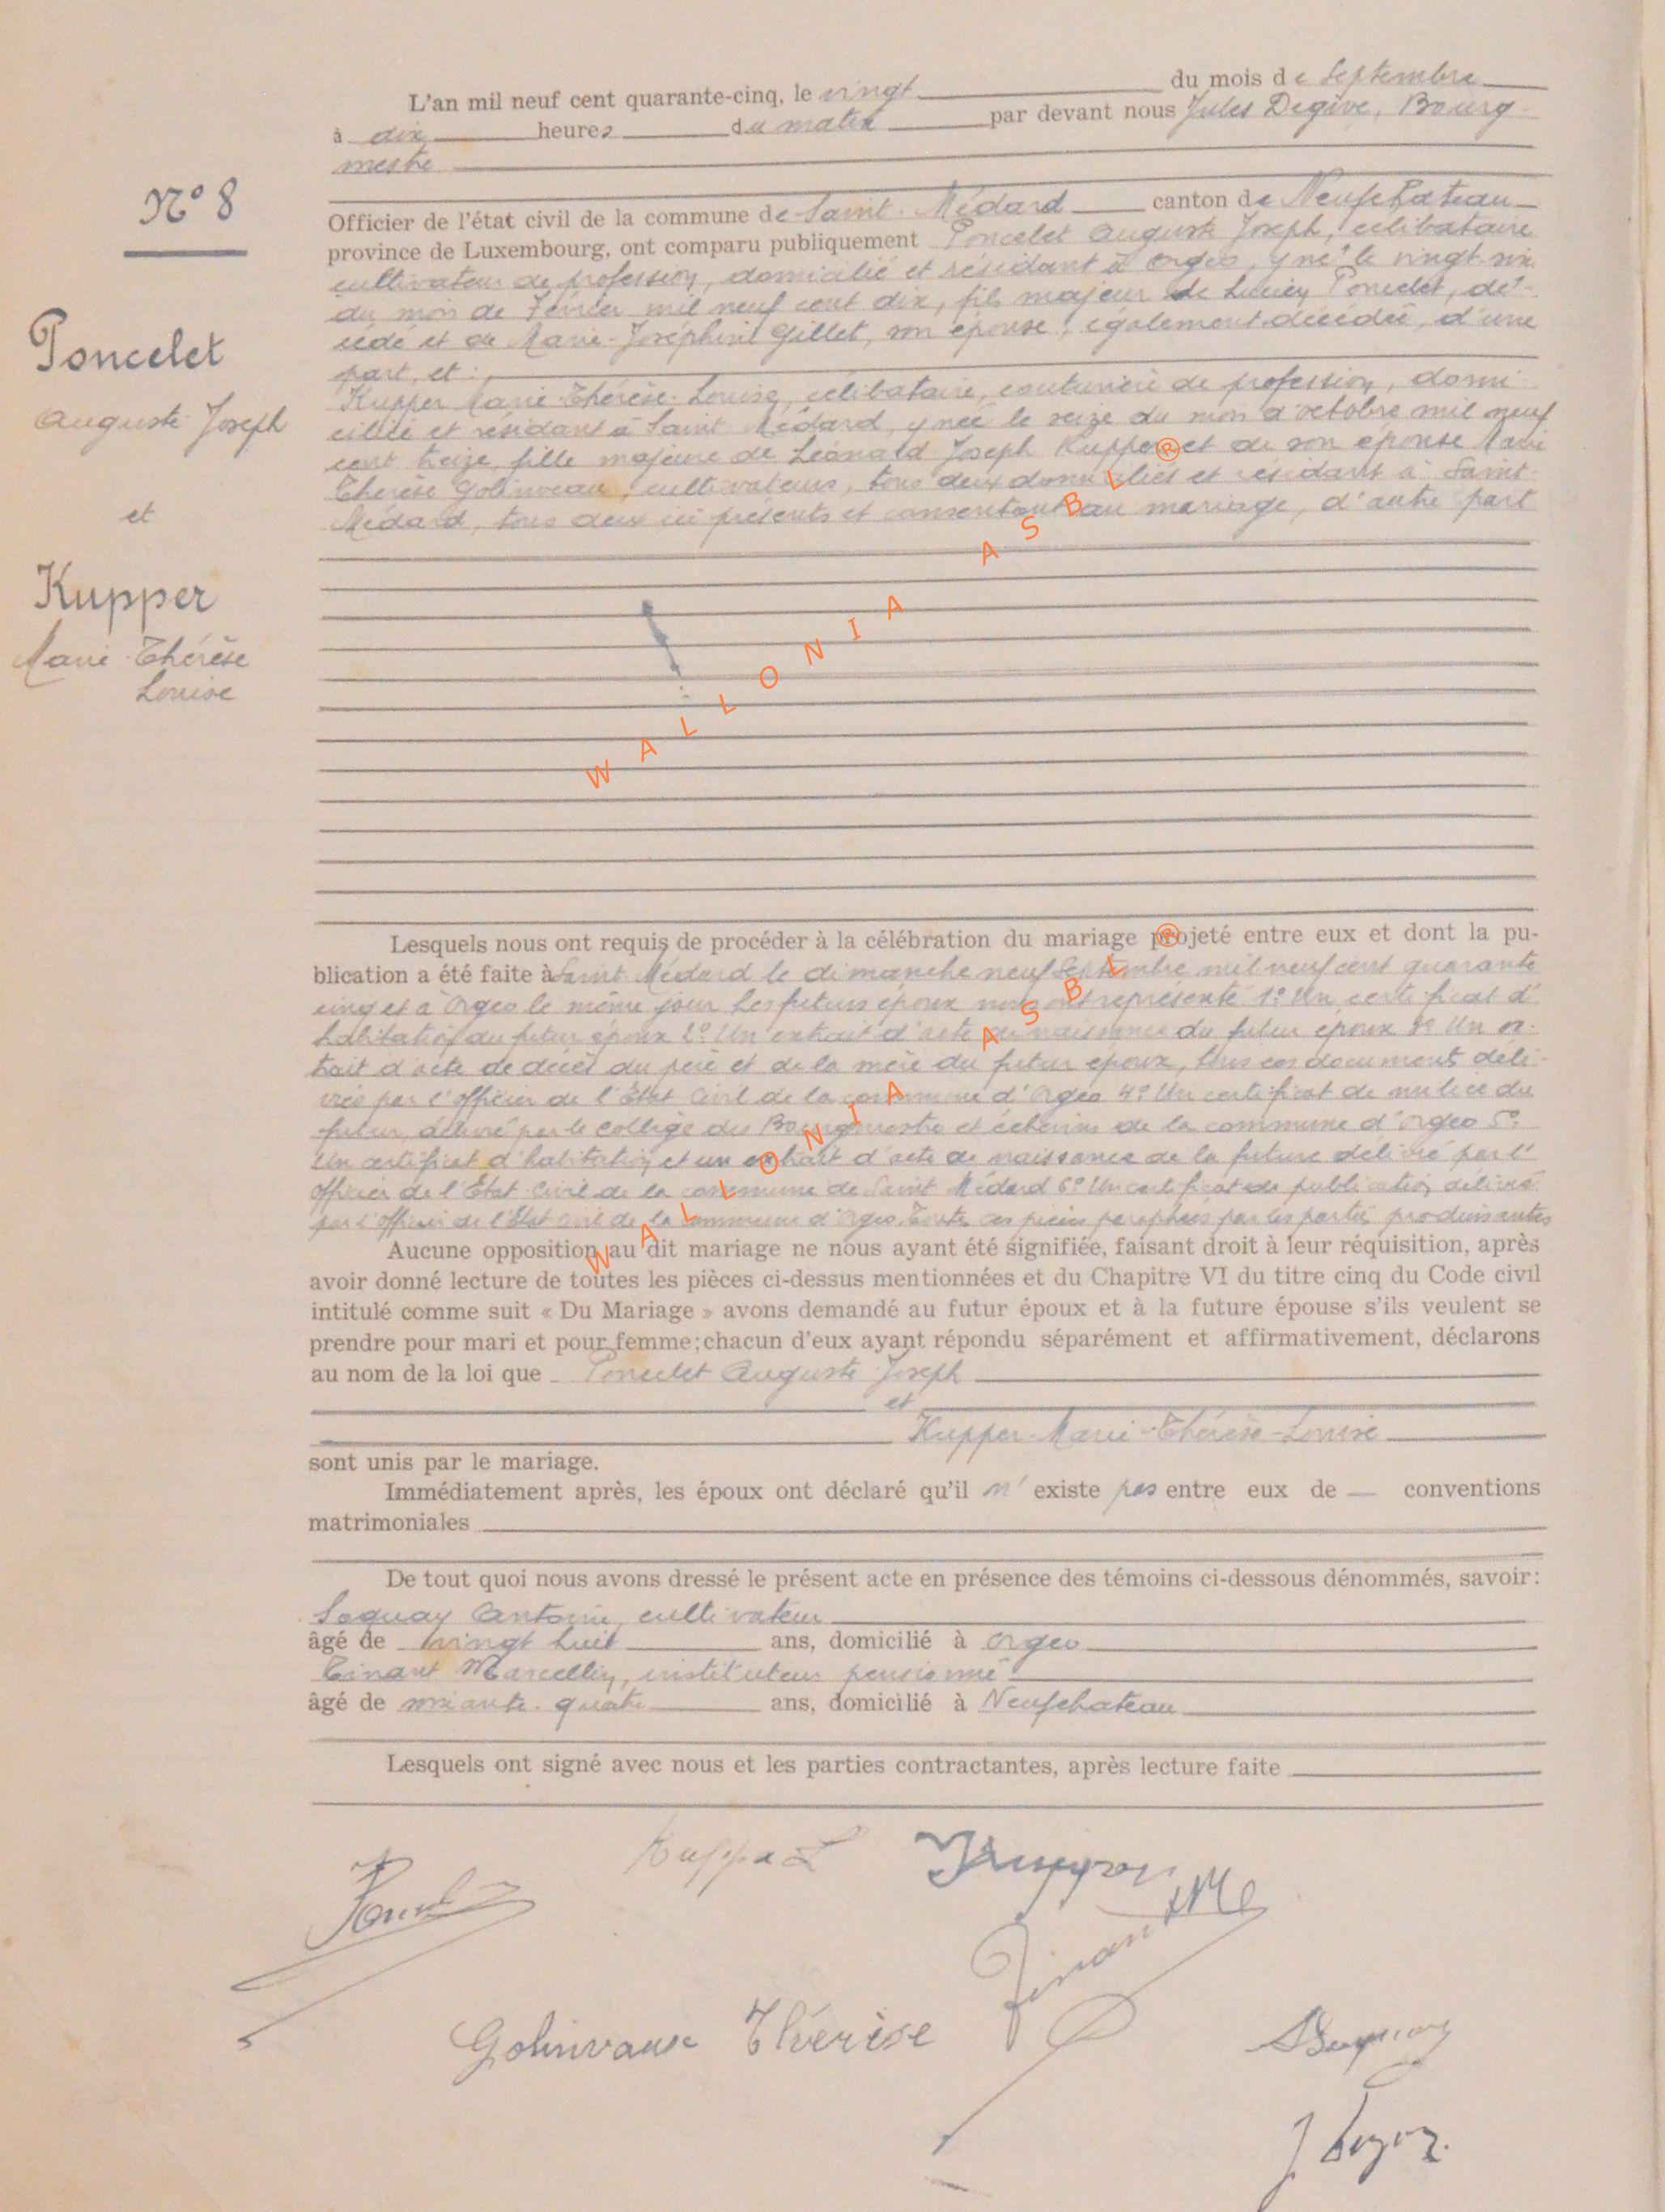 L'an mil neuf cent quarante-cinq, le vingt du mois de Septembre
à dix heures du matin par devant nous Jules Degive, Bourg-
mestre
N° 8
Officier de l'état civil de la commune de Saint-Médard canton de Neufchateau
province de Luxembourg, ont comparu publiquement Poncelet Auguste Joseph, célibataire
cultivateur de profession, domicilié et résidant à Orgeo, y né le vingt-six
du mois de Février mil neuf cent dix, fils majeur de Lucien Poncelet, dé-
cédé et de Marie-Joséphine Gillet, son épouse, également décédée, d'une
part, et :
Poncelet
Auguste Joseph
et
Kupper
Marie-Thérèse
Louise
Kupper Marie-Thérèse-Louise, célibataire, couturière de profession, domi-
ciliée et résidant à Saint-Médard, y née le seize du mois d'octobre mil neuf
cent treize, fille majeure de Léonard Joseph Kupper et de son épouse Marie
Thérèse Golinveau, cultivateurs, tous deux domiciliés et résidant à Saint-
Médard, tous deux ici présents et consentant au mariage, d'autre part
WALLONIA ASBL ®
Lesquels nous ont requis de procéder à la célébration du mariage projeté entre eux et dont la pu-
blication a été faite à Saint-Médard le dimanche neuf Septembre mil neuf cent quarante
cinq et à Orgeo le même jour les futurs époux nous ont représenté 1° Un certificat d'
habitation du futur époux 2° Un extrait d'acte de naissance du futur époux 3° Un ex-
trait d'acte de décès du père et de la mère du futur époux, tous ces document déli-
vrés par l'officier de l'Etat Civil de la commune d'Orgeo 4° Un certificat de milice du
futur, délivré par le collège des Bourgmestre et échevins de la commune d'Orgeo 5°
Un certificat d'habitation et un extrait d'acte de naissance de la future délivré par l'
officier de l'Etat Civil de la commune de Saint Médard 6° Un certificat de publication délivré
par l'officier de l'Etat Civil de la commune d'Orgeo. Toutes ces pièces paraphées par les parties produisantes
WALLONIA ASBL ®
Aucune opposition au dit mariage ne nous ayant été signifiée, faisant droit à leur réquisition, après
avoir donné lecture de toutes les pièces ci-dessus mentionnées et du Chapitre VI du titre cinq du Code civil
intitulé comme suit « Du Mariage » avons demandé au futur époux et à la future épouse s'ils veulent se
prendre pour mari et pour femme; chacun d'eux ayant répondu séparément et affirmativement, déclarons
au nom de la loi que Poncelet Auguste Joseph
et
Kupper-Marie-Thérèse-Louise
sont unis par le mariage.
Immédiatement après, les époux ont déclaré qu'il n' existe pas entre eux de — conventions
matrimoniales
De tout quoi nous avons dressé le présent acte en présence des témoins ci-dessous dénommés, savoir:
Antoine, cultivateur
âgé de vingt huit ans, domicilié à Orgeo
Tinant Marcellin, instituteur pensionné
âgé de soixante-quatre ans, domicilié à Neufchateau
Lesquels ont signé avec nous et les parties contractantes, après lecture faite
Kupper L
Tinant M
Golinvaux Thérèse